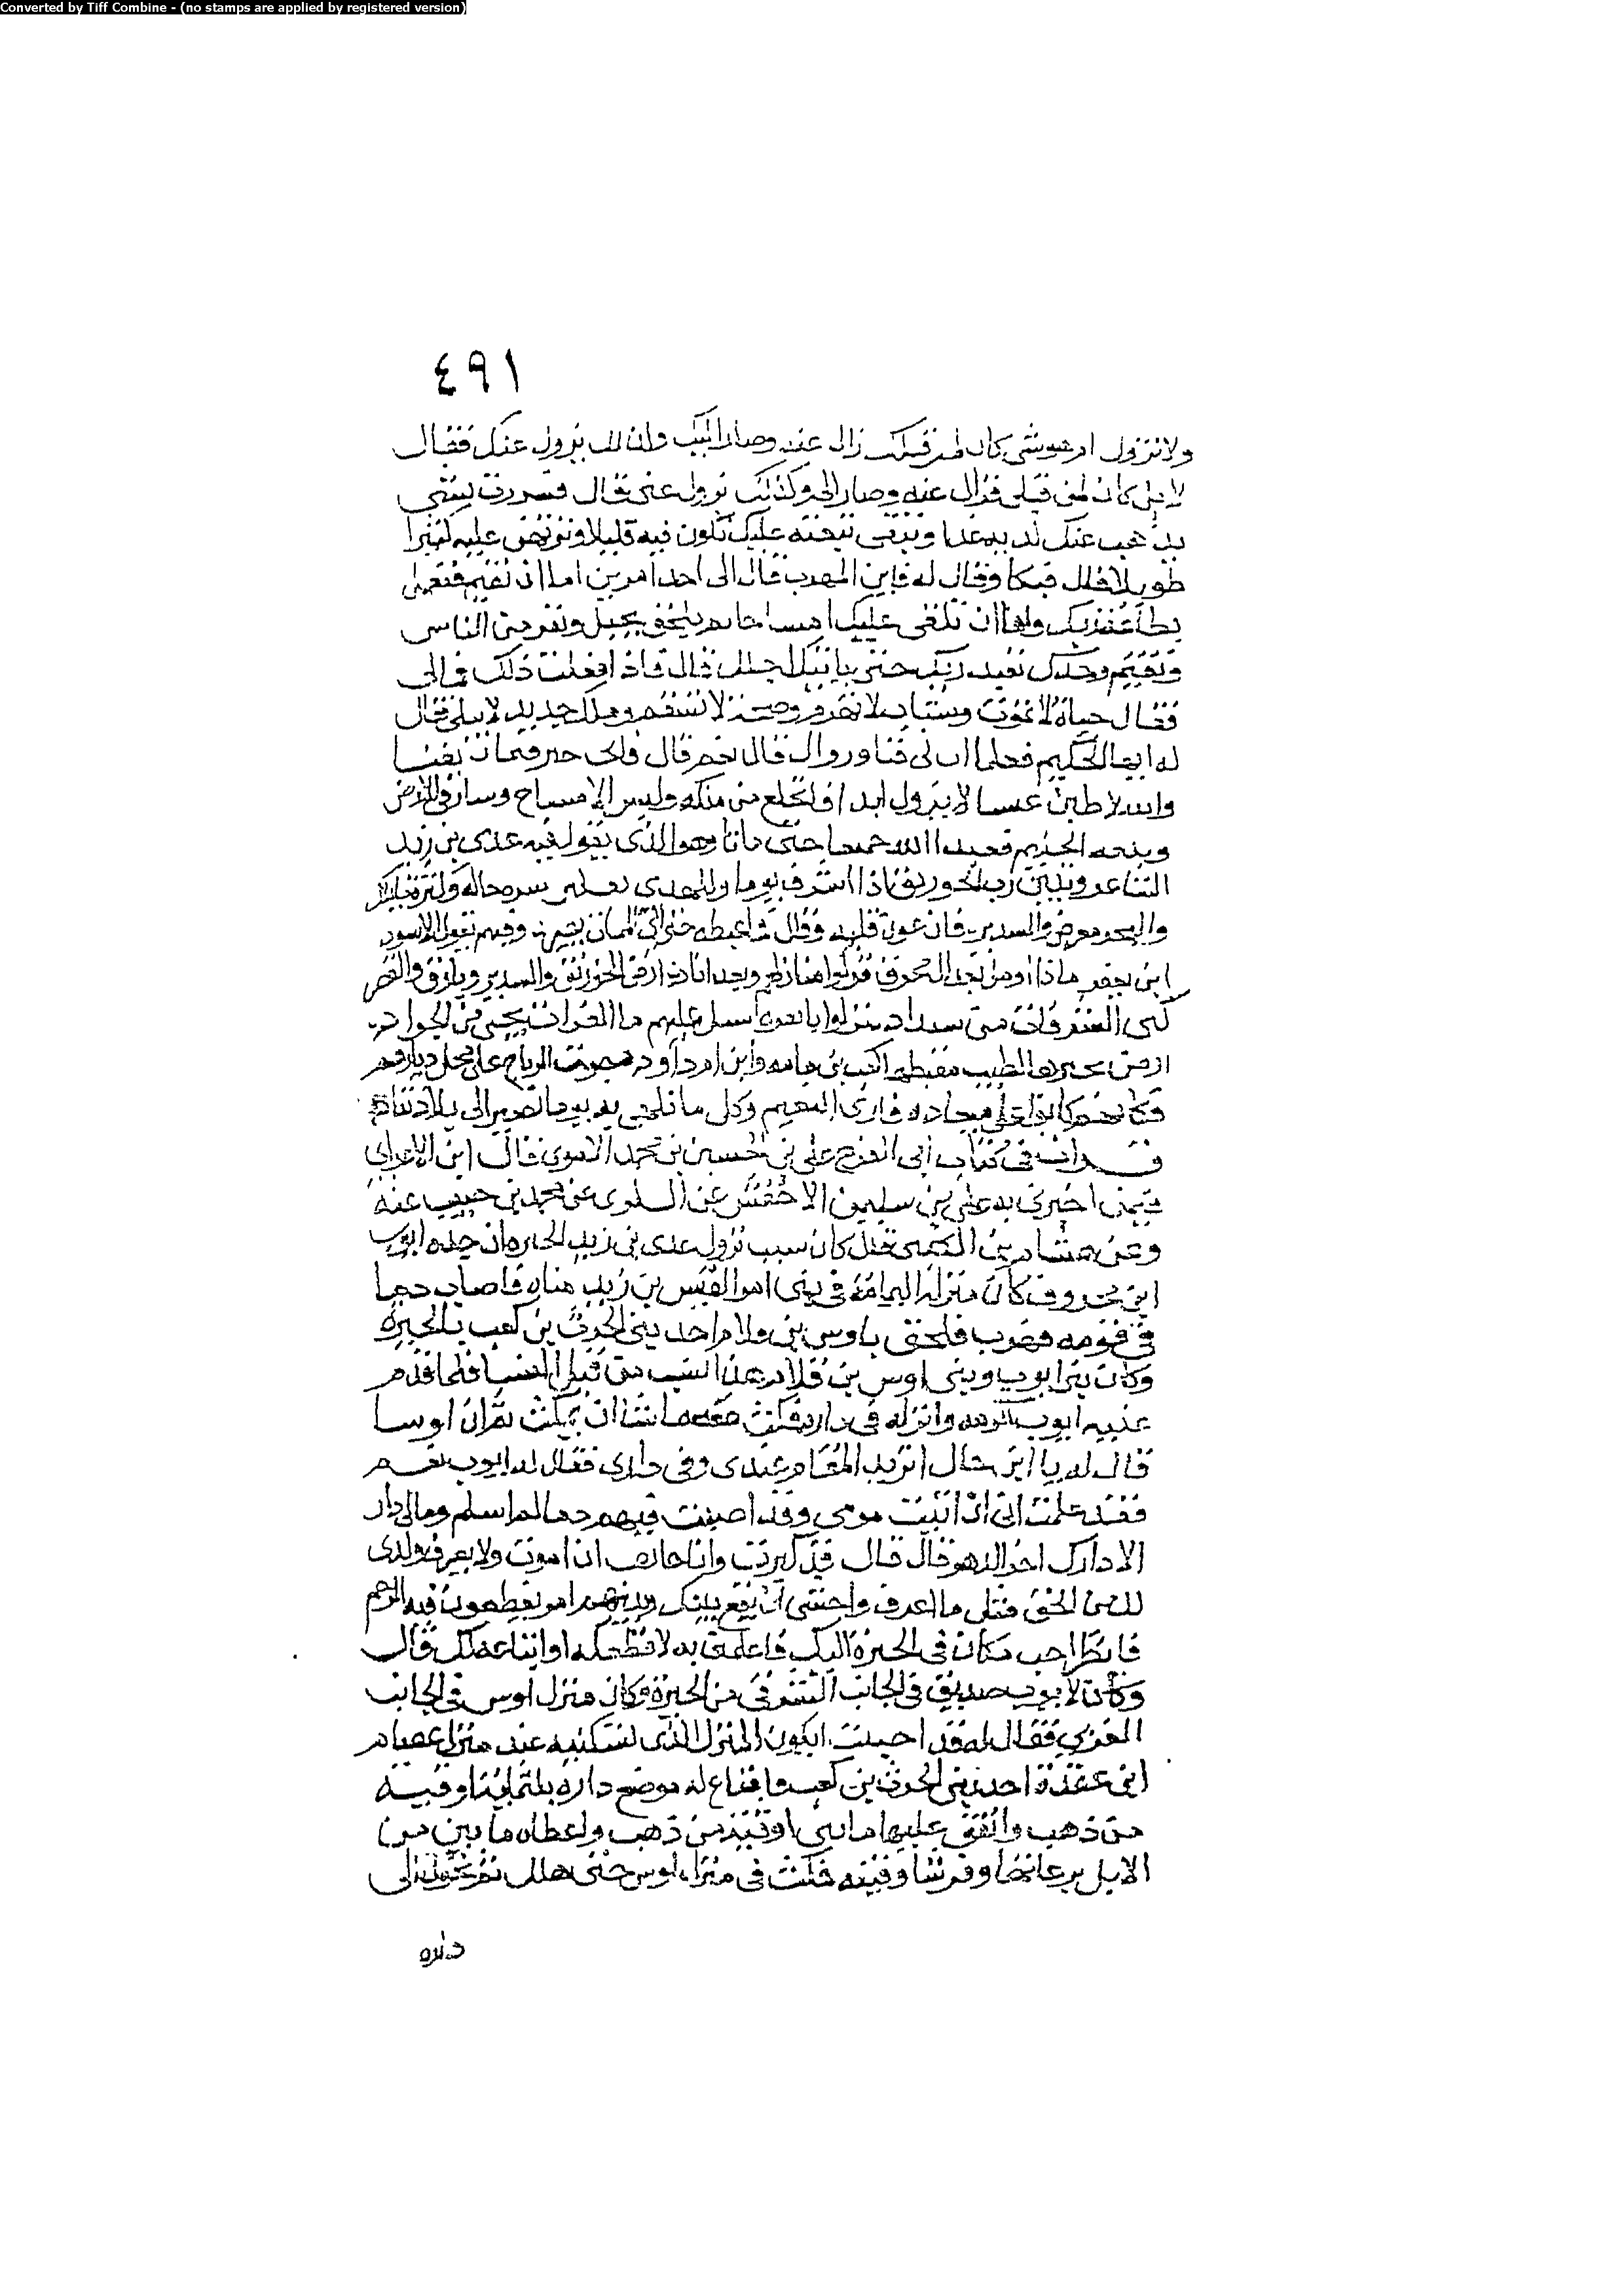 Converted by Tiff Combine - (no stamps are applied by registered version)
٤٩١
ولا تزول ام هو شي كان لمن قبلك زال عنه وصار اليك وكذلك يزول عنك فقال
لا بل كان لمن قبلي فزال عنه وصار الي وكذلك يزول عني قال فسررت بشي
يذهب عنك لذته غدا وتبقى تبعته عليك تكون فيه قليلا وترتهن عليه كثيرا
طويلا قال فبكا وقال له فاين المهرب قال الى احد امرين اما ان تقيم فتعمل
بطاعة ربك واما ان تلقى عليك امساحا ثم تلحق بجبل وتفر من الناس
وتقيم وحدك تعبد ربك حتى ياتيك اجلك قال فاذا فعلت ذلك فما لي
فقال حياة لا تموت وشباب لا يهرم وصحة لا تسقم وملك جديد لا يبلى فقال
له ايها الحكيم فكلما ارى لى فنا وزوال قال نعم قال فاى خير فيما يفنا
والله لاطلبن عيشا لا يزول ابدا فانخلع من ملكه ولبس الامساح وسار في الارض
وتبعه الحكيم فعبدا الله جميعا حتى ماتا وهو الذي يقول فيه عدى بن زيد
وتبين رب الخورنق اذا اشرف يوما وللهدى تفكير سره حاله وكثرة ما يملك
والبحر معرض والسدير فقال وما غبطة حي الى الممات يصير وفيهم يقول الاسود
ابن يعفر ماذا اومل بعد ال محرق تركوا منازلهم وبعد اياد ارض الخورنق والسدير وبارق والقصر
ذي الشرفات من سنداد نزلوا بانقره يسيل عليهم ما الفرات يجي من
ارض الطيب مقيظها كعب بن مامه وابن ام داود جرت الرياح على محل ديارهم
فكانهم كانوا على ميعاد فارى النعيم وكل ما يلهى به يوما يصير الى بلا ونفاد
قرات في كتاب ابي الفرج علي بن الحسين بن محمد الاموى قال ابن الاعرابي
فيما اخبرني به علي بن سليمن الاخفش عن السكرى عن محمد بن حبيب عنه
وعن هشام بن الكلبي قال كان سبب نزول عدى بن زيد الحيره ان جده ايوب
ابن محروف كان منزله اليمامة في بني امرو القيس بن زيد مناه فاصاب دما
في قومه فهرب فلحق باوس بن قلام احد بني الحرث بن كعب بالحيرة
وكان بين ايوب وبين اوس بن قلام هذا نسب من قبل النسا فلما قدم
عليه ايوب اكرمه وانزله في داره فمكث معه ما شا ان يمكث ثم ان اوسا
قال له يا ابن خال اتريد المقام عندى وفي دارى فقال له ايوب نعم
فقد علمت اني ان اتيت قومى وقد اصبت فيهم دما لم اسلم ومالي دار
الا دارك اخر الدهر قال قال قد كبرت وانا خائف ان اموت ولا يعرف ولدى
لك من الحق مثل ما اعرف واخشى ان يقع بينك وبينهم امر يقطعون فيه الرحم
فانظر احب مكان في الحيرة اليك فاعلمني به لاقطعكه او ابتاعه لك قال
وكان لايوب صديق في الجانب الشرقى من الحيرة وكان منزل اوس في الجانب
الغربي فقال له قد احببت ان يكون المنزل الذي تسكنيه عند منزل عصام
ابن عقدة احد بني الحرث بن كعب فابتاع له موضع داره بثلثمائة اوقية
من ذهب وانفق عليها مايتي اوقية من ذهب واعطاه مايتين من
الابل برعاتها وفرسا وقينه فمكث في منزل اوس حتى هلك ثم تحول الى
داره